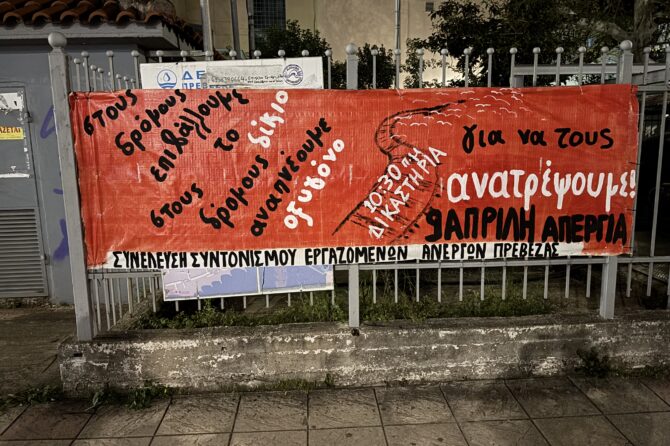 ΔΕ
ΠΡΕΒ
ΑΖΕΤΑΙ
στους
δρόμους
επιβάλλουμε
το δίκιο
στους
δρόμους
αναπνέουμε
οξυγόνο
10:30πμ
ΔΙΚΑΣΤΗΡΙΑ
για να τους
ανατρέψουμε!
9ΑΠΡΙΛΗ ΑΠΕΡΓΙΑ
ΣΥΝΕΛΕΥΣΗ ΣΥΝΤΟΝΙΣΜΟΥ ΕΡΓΑΖΟΜΕΝΩΝ ΑΝΕΡΓΩΝ ΠΡΕΒΕΖΑΣ